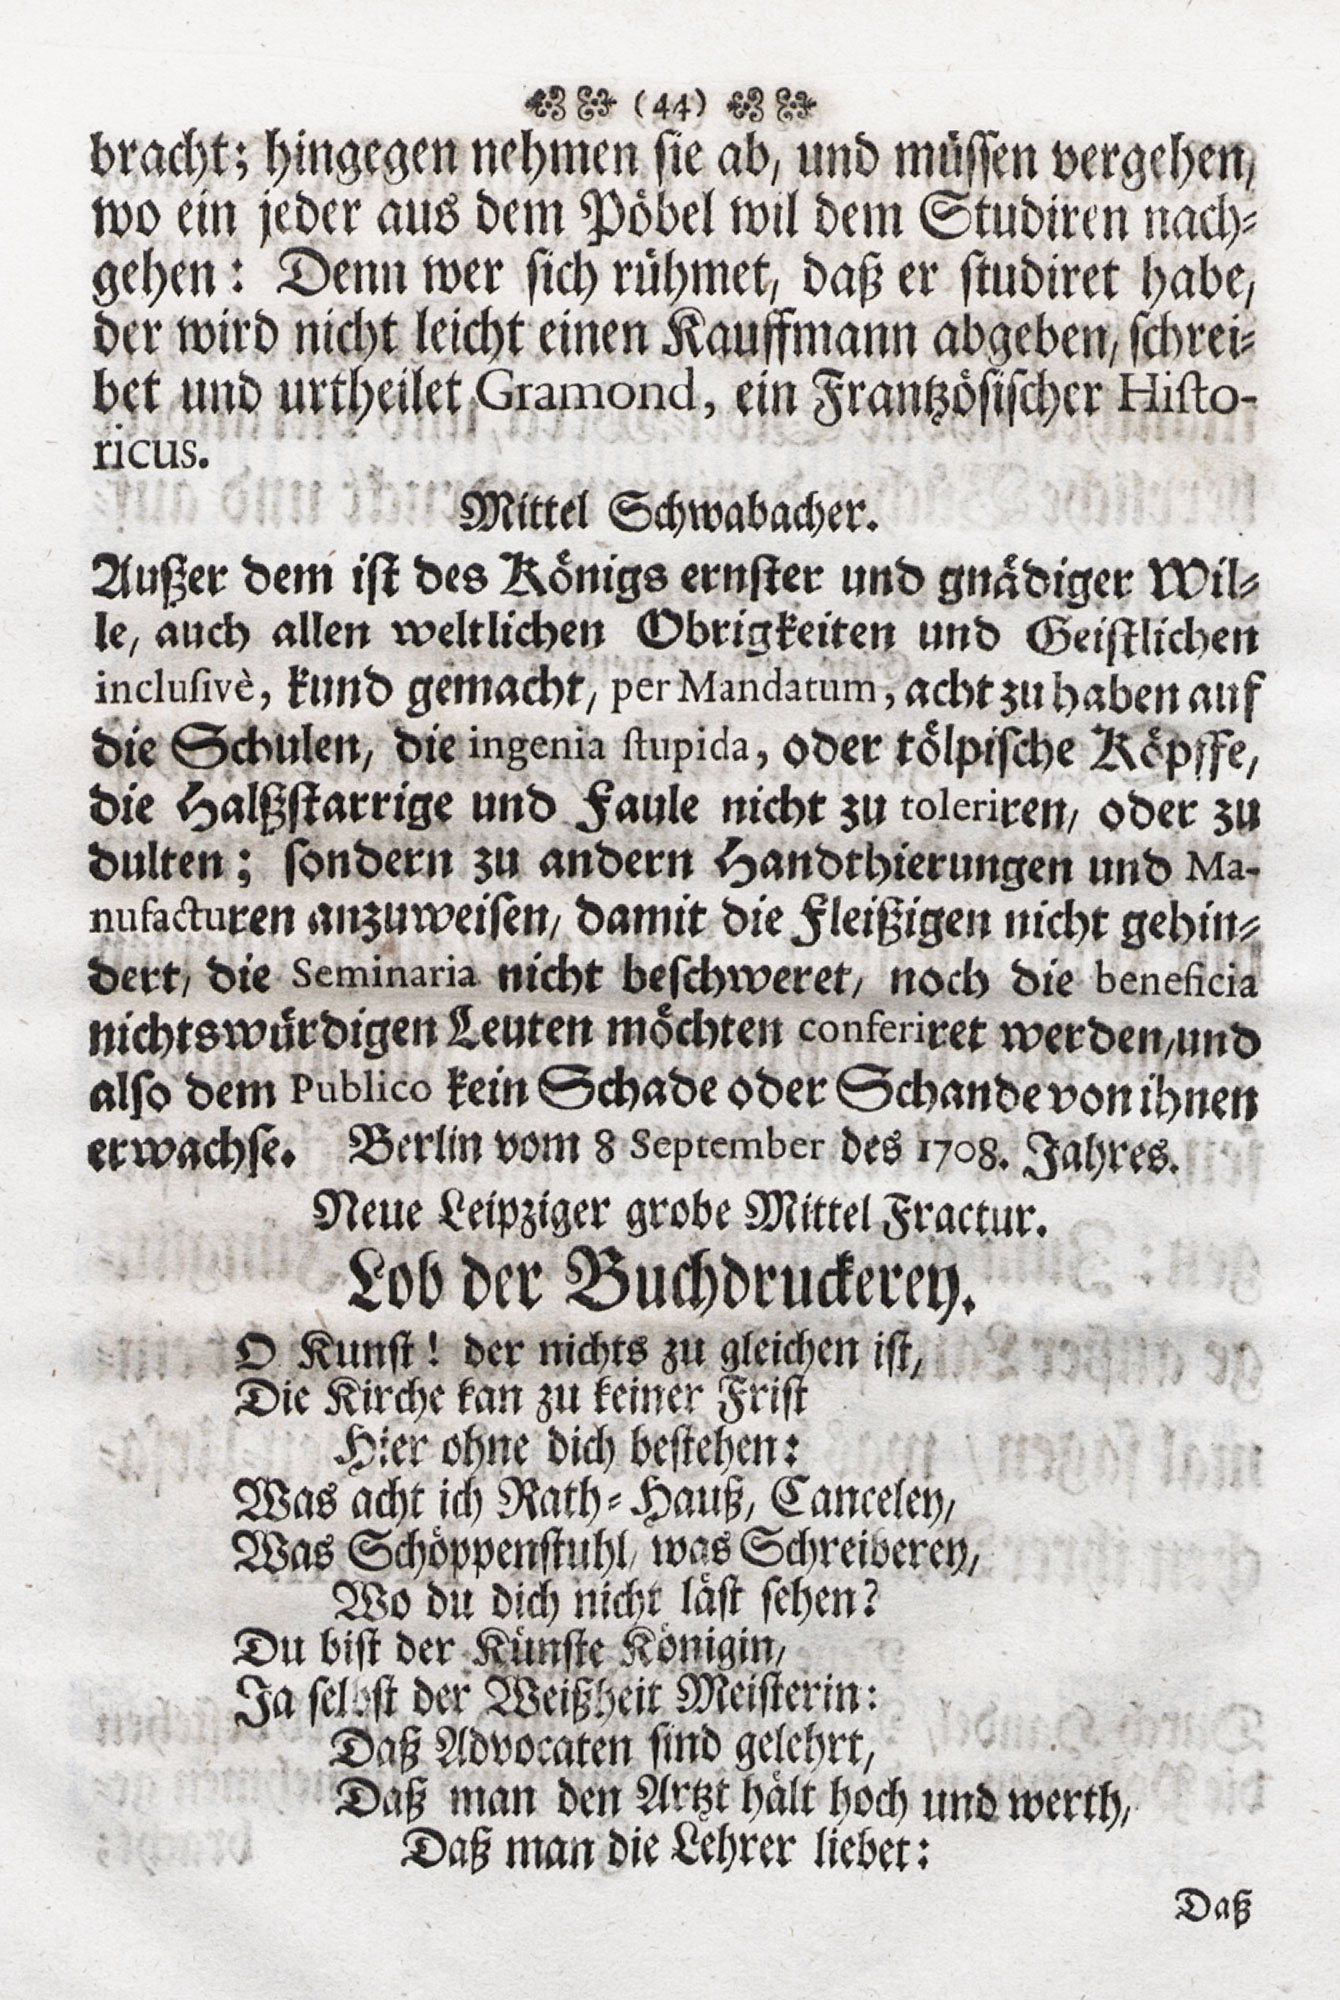 (44)
bracht; hingegen nehmen sie ab, und müssen vergehen,
wo ein jeder aus dem Pöbel wil dem Studiren nach-
gehen: Denn wer sich rühmet, daß er studiret habe,
der wird nicht leicht einen Kauffmann abgeben, schrei-
bet und urtheilet Gramond, ein Frantzösischer Histo-
ricus.
Mittel Schwabacher.
Außer dem ist des Königs ernster und gnädiger Wil-
le, auch allen weltlichen Obrigkeiten und Geistlichen
inclusivè, kund gemacht, per Mandatum, acht zu haben auf
die Schulen, die ingenia stupida, oder tölpische Köpffe,
die Halßstarrige und Faule nicht zu toleriren, oder zu
dulten; sondern zu andern Handthierungen und Ma-
nufacturen anzuweisen, damit die Fleißigen nicht gehin-
dert, die Seminaria nicht beschweret, noch die beneficia
nichtswürdigen Leuten möchten conferiret werden, und
also dem Publico kein Schade oder Schande von ihnen
erwachse. Berlin vom 8 September des 1708. Jahres.
Neue Leipziger grobe Mittel Fractur.
Lob der Buchdruckerey.
O Kunst! der nichts zu gleichen ist,
Die Kirche kan zu keiner Frist
Hier ohne dich bestehen:
Was acht ich Rath-Hauß, Canceley,
Was Schöppenstuhl, was Schreiberey,
Wo du dich nicht läst sehen?
Du bist der Künste Königin,
Ja selbst der Weißheit Meisterin:
Daß Advocaten sind gelehrt,
Daß man den Artzt hält hoch und werth,
Daß man die Lehrer liebet:
Daß